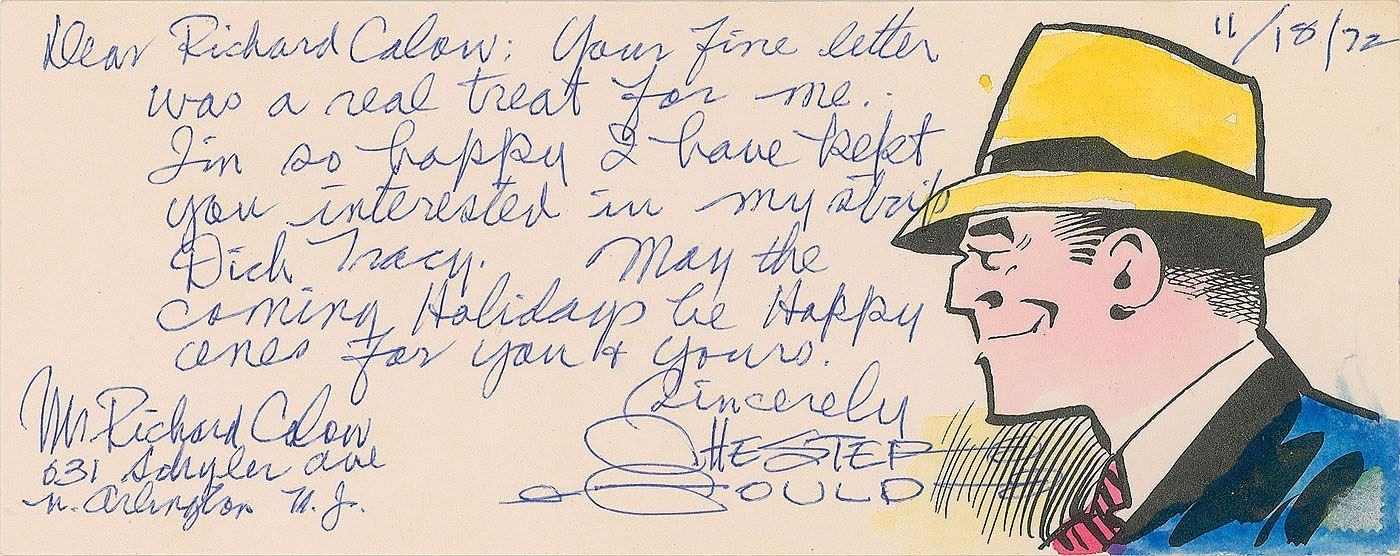 11/18/72
Dear Richard Calow: Your fine letter
was a real treat for me.
I'm so happy I have kept
you interested in my strip
Dick Tracy. May the
coming Holidays be Happy
ones for you & yours.
Sincerely
CHESTER
GOULD
Mr Richard Calow
631 Schyler Ave
N. Arlington N.J.